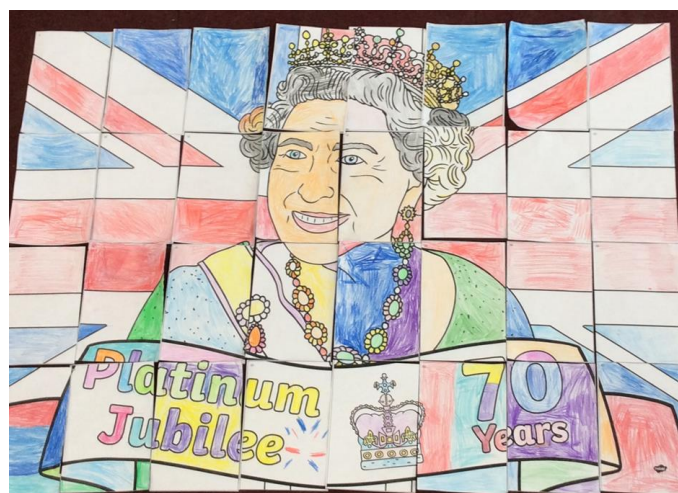 Platinum
Jubilee
70
Years